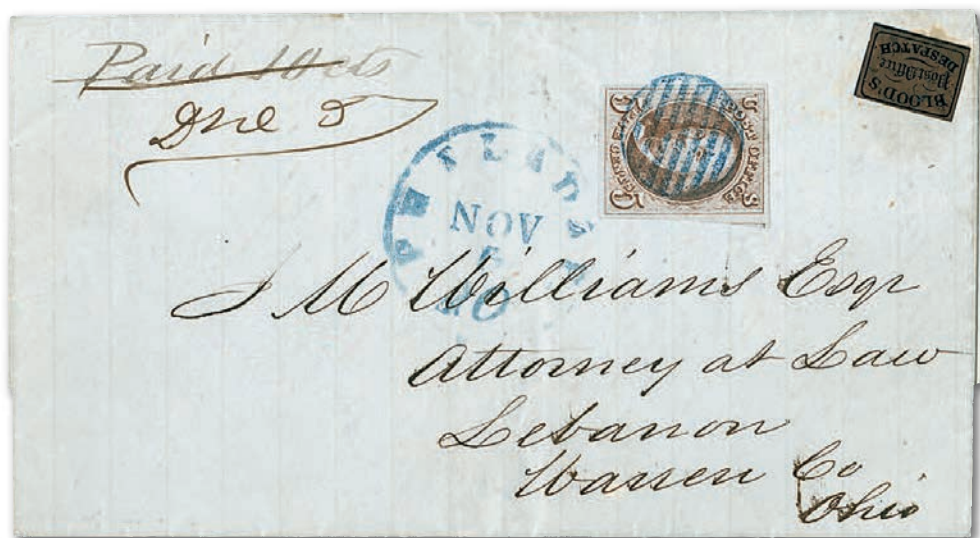 Paid 10 cts
Due 5
BLOOD'S
Post Office
DESPATCH.
POST OFFICE
5 5
PHILADA
NOV
5
10
J M Williams Esqr
Attorney at Law
Lebanon
Warren Co
Ohio